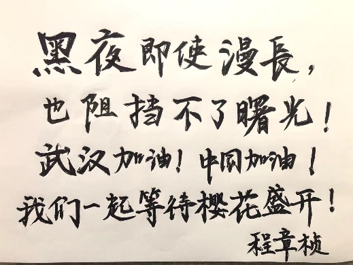 黑夜即使漫長，
也阻挡不了曙光！
武汉加油！中国加油！
我们一起等待樱花盛开！
程章桢